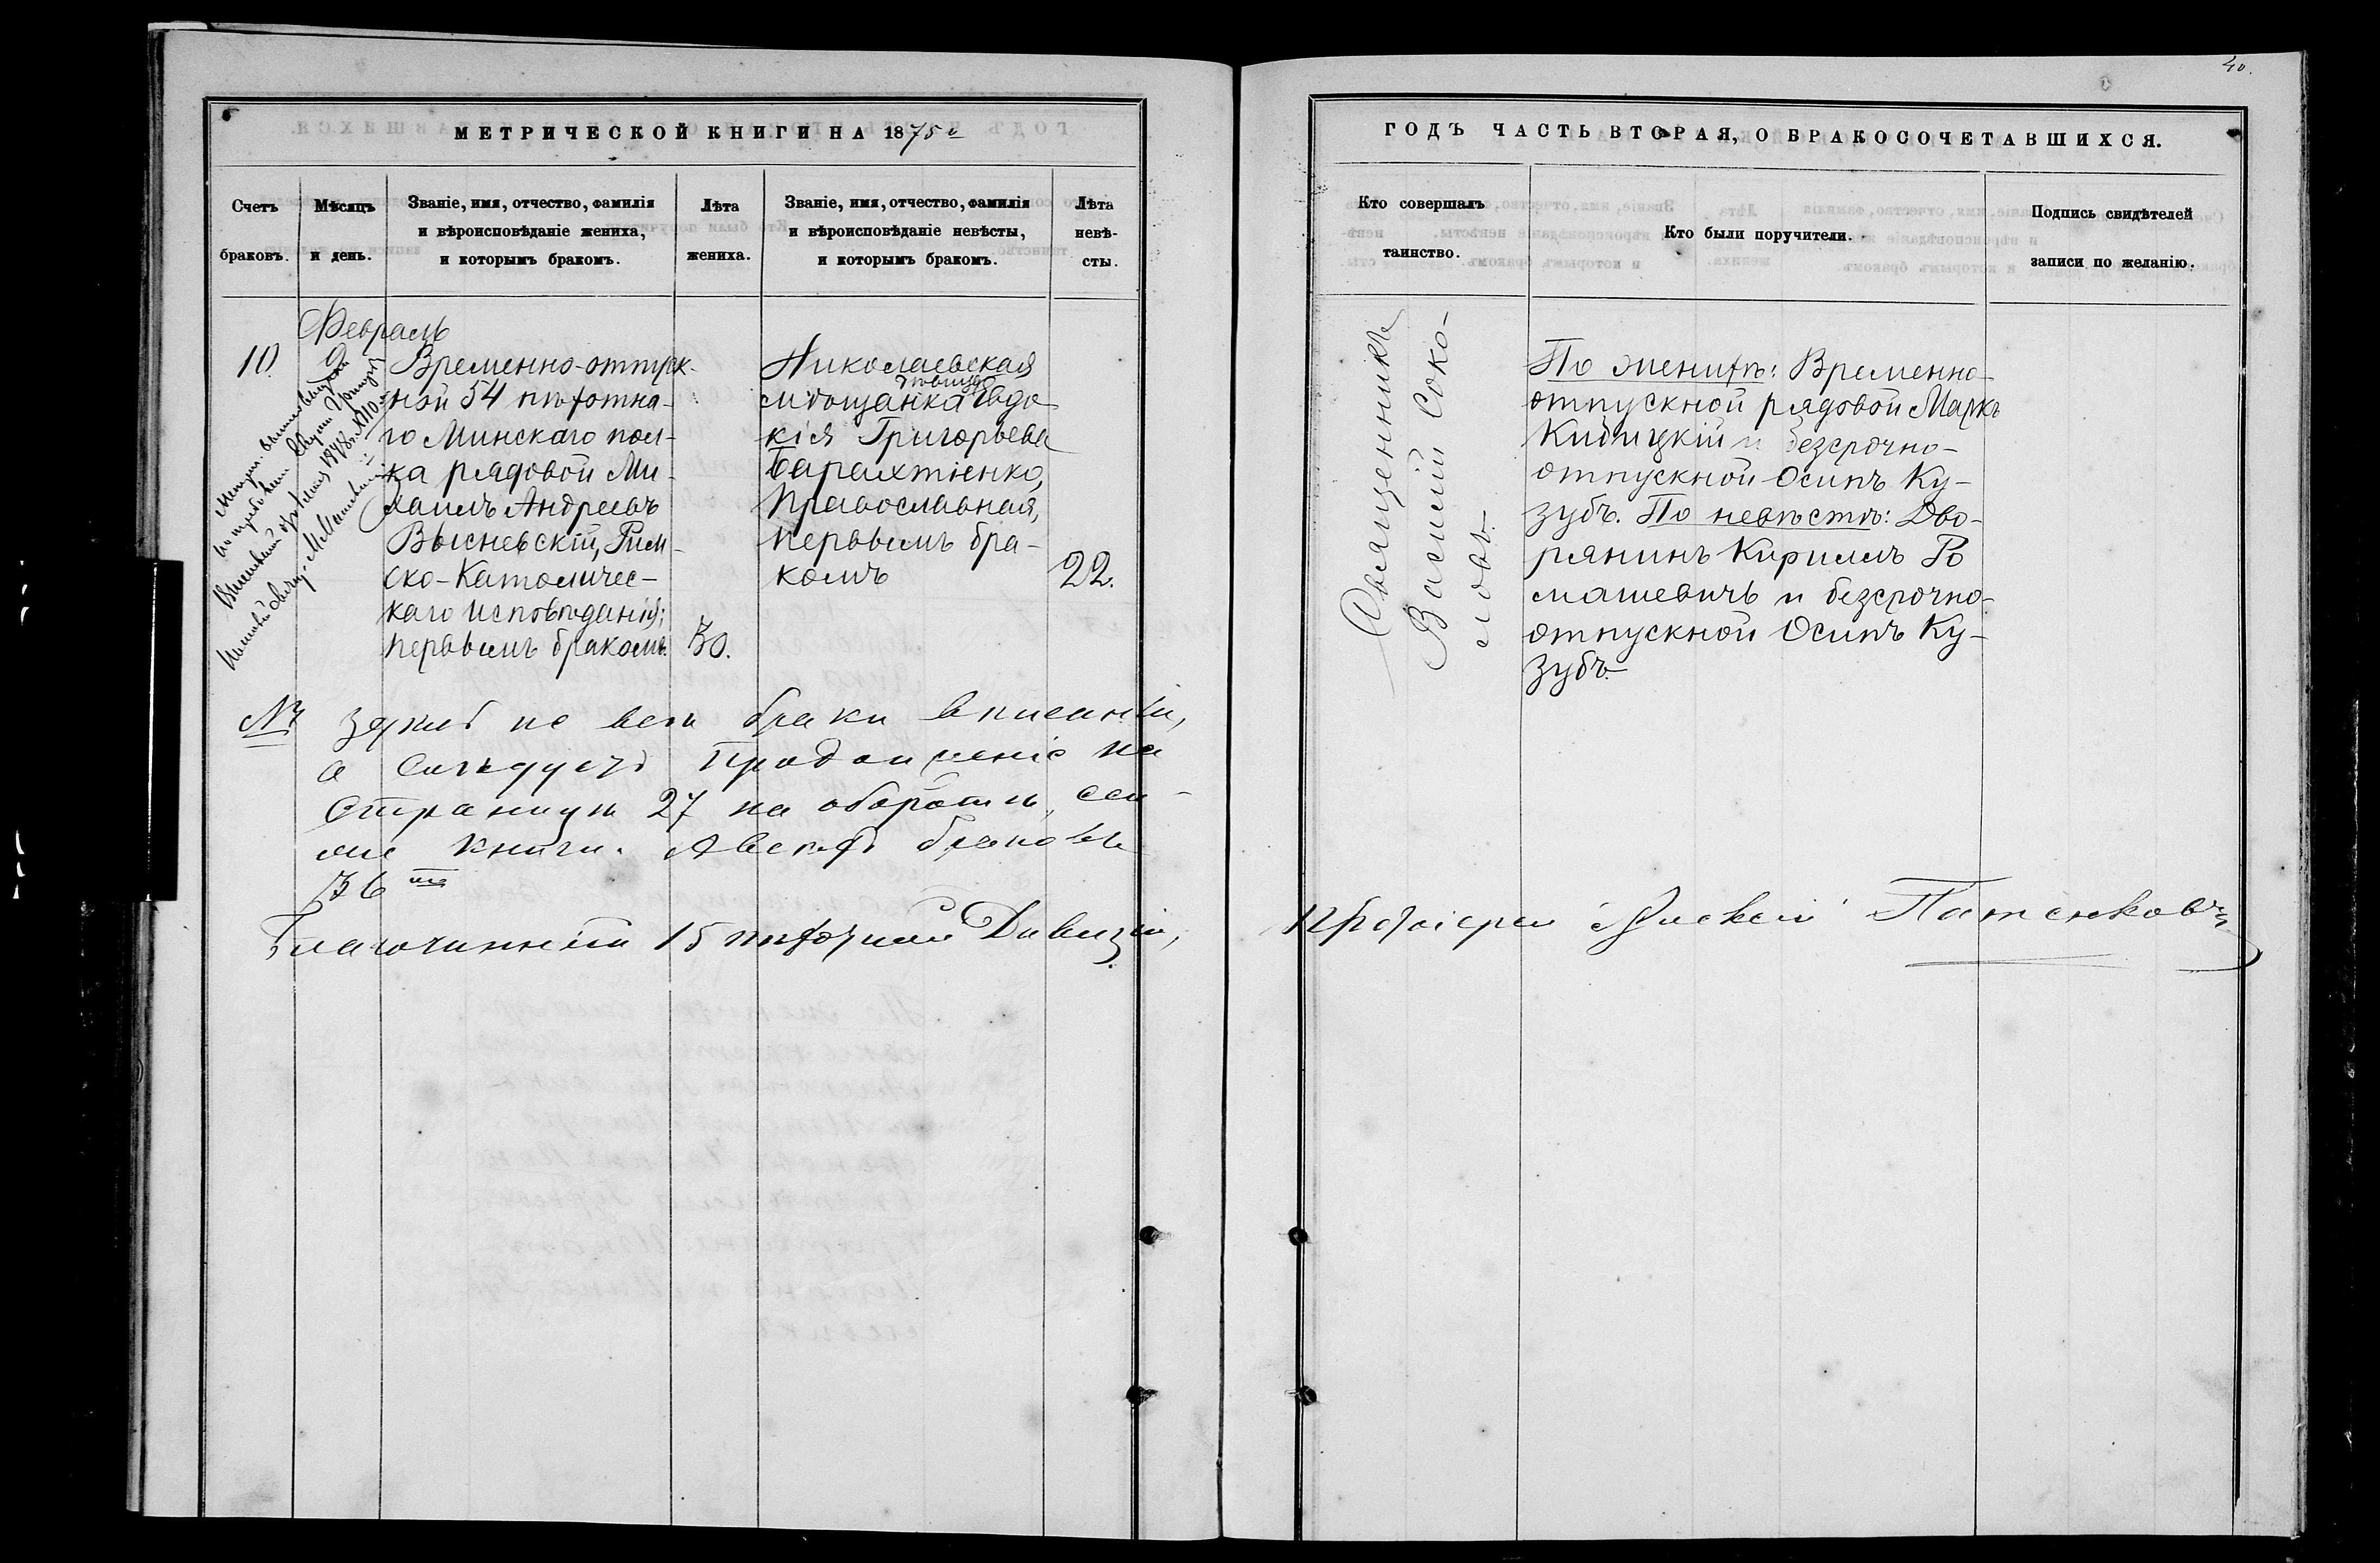 40.
МЕТРИЧЕСКОЙ КНИГИ НА 1875 г
ГОДЪ ЧАСТЬ ВТОРАЯ, О БРАКОСОЧЕТАВШИХСЯ.
Счетъ
браковъ.
Мѣсяцъ
и день.
Званіе, имя, отчество, фамилія
и вѣроисповѣданіе жениха,
и которымъ бракомъ.
Лѣта
жениха.
Званіе, имя, отчество, фамилія
и вѣроисповѣданіе невѣсты,
и которымъ бракомъ.
Лѣта
невѣ-
сты.
Кто совершалъ
таинство.
Кто были поручители.
Подпись свидѣтелей
записи по желанію.
Февраль
10.
9.
Временно-отпуск-
ной 54 пѣхотна-
го Минскаго пол-
ка рядовой Ми-
хаилъ Андреевъ
Высневскій, Рим-
ско-Католичес-
каго исповѣданія;
первымъ бракомъ.
30.
Николаевская
мѣщанка дѣвица Евдо-
кія Григорьева
Барахтѣнко,
Православная,
первымъ бра-
комъ
22.
Священникъ
Василій Соко-
ловъ.
По женихѣ: Временно-
отпускной рядовой Маркъ
Кибицкій и безсрочно-
отпускной Осипъ Ку-
зубъ. По невѣстѣ: Дво-
рянинъ Кирилъ Ро
машевичъ и безсрочно-
отпускной Осипъ Ку-
зубъ.
не всѣ браки вписаны,
а слѣдуетъ продолженіе на
страницѣ 27 на оборотѣ сей-
же книги. А всехъ браковъ
36
Благочинный 15 пѣхотной Дивизіи,
Протоіерей Алексій